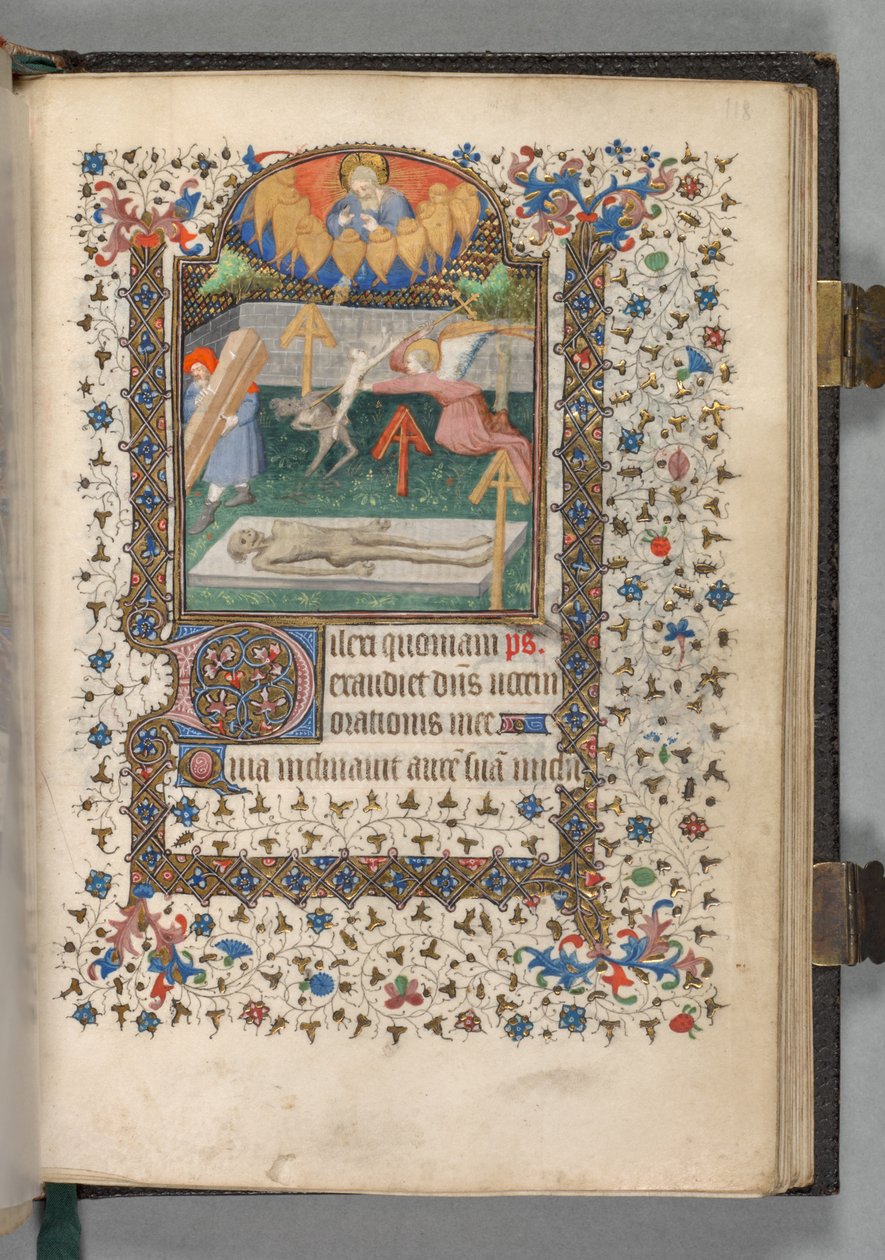 118
Dilexi quoniam ps.
exaudiet dn̄s uocem
orationis mee
Quia inclinauit aurē suā michi